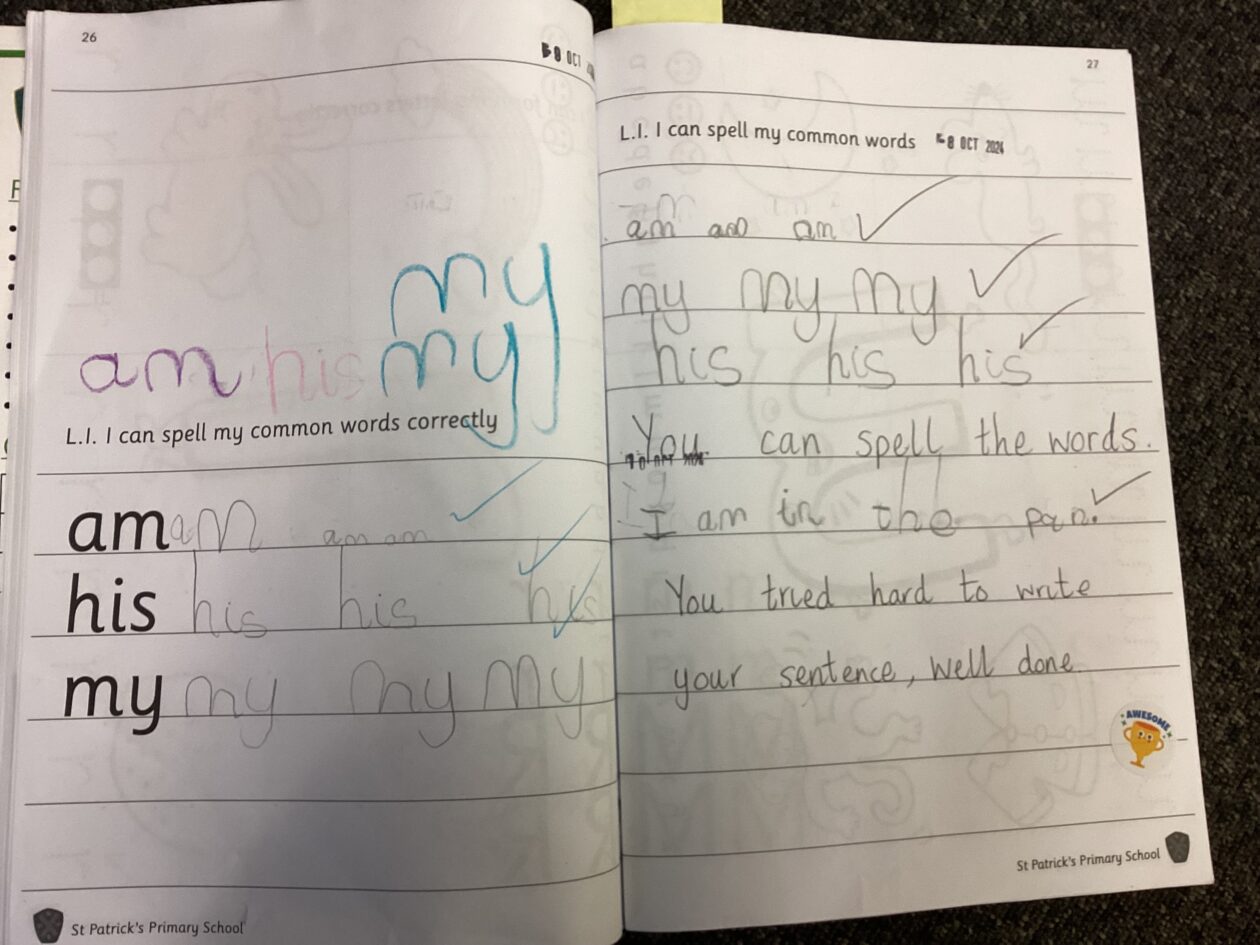 26
8 OCT
my
am his my
L.I. I can spell my common words correctly
am am am am
his his his his
my my my my
St Patrick's Primary School
27
L.I. I can spell my common words 8 OCT 2024
am am am
my my my
his his his
You can spell the words.
I am in the pan.
You tried hard to write
your sentence, well done
AWESOME
St Patrick's Primary School